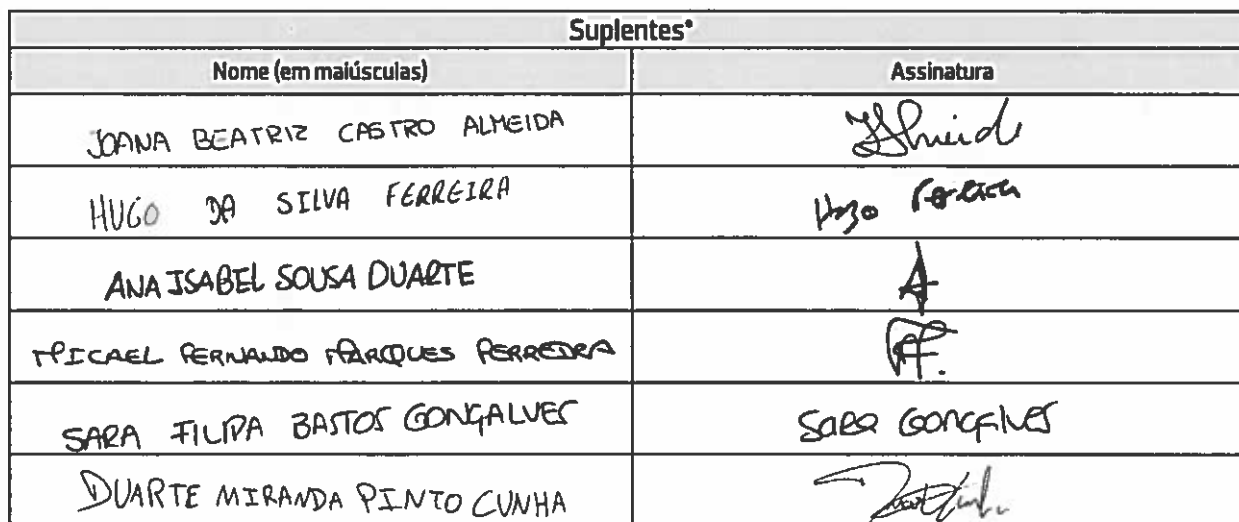 Suplentes*
Nome (em maiúsculas) Assinatura
JOANA BEATRIZ CASTRO ALMEIDA
HUGO DA SILVA FERREIRA Hugo Ferreira
ANA ISABEL SOUSA DUARTE A
MICAEL FERNANDO MARQUES FERREIRA
SARA FILIPA BASTOS GONÇALVES Sara Gonçalves
DUARTE MIRANDA PINTO CUNHA